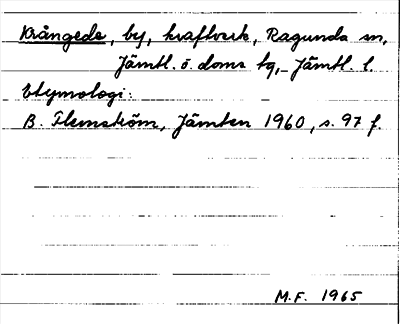 Krångede, by, kraftverk, Ragunda sn,
Jämtl. ö. doms hg, Jämtl. l.
Etymologi:
B. Flemström, Jämten 1960, s. 97 f.
M.F. 1965